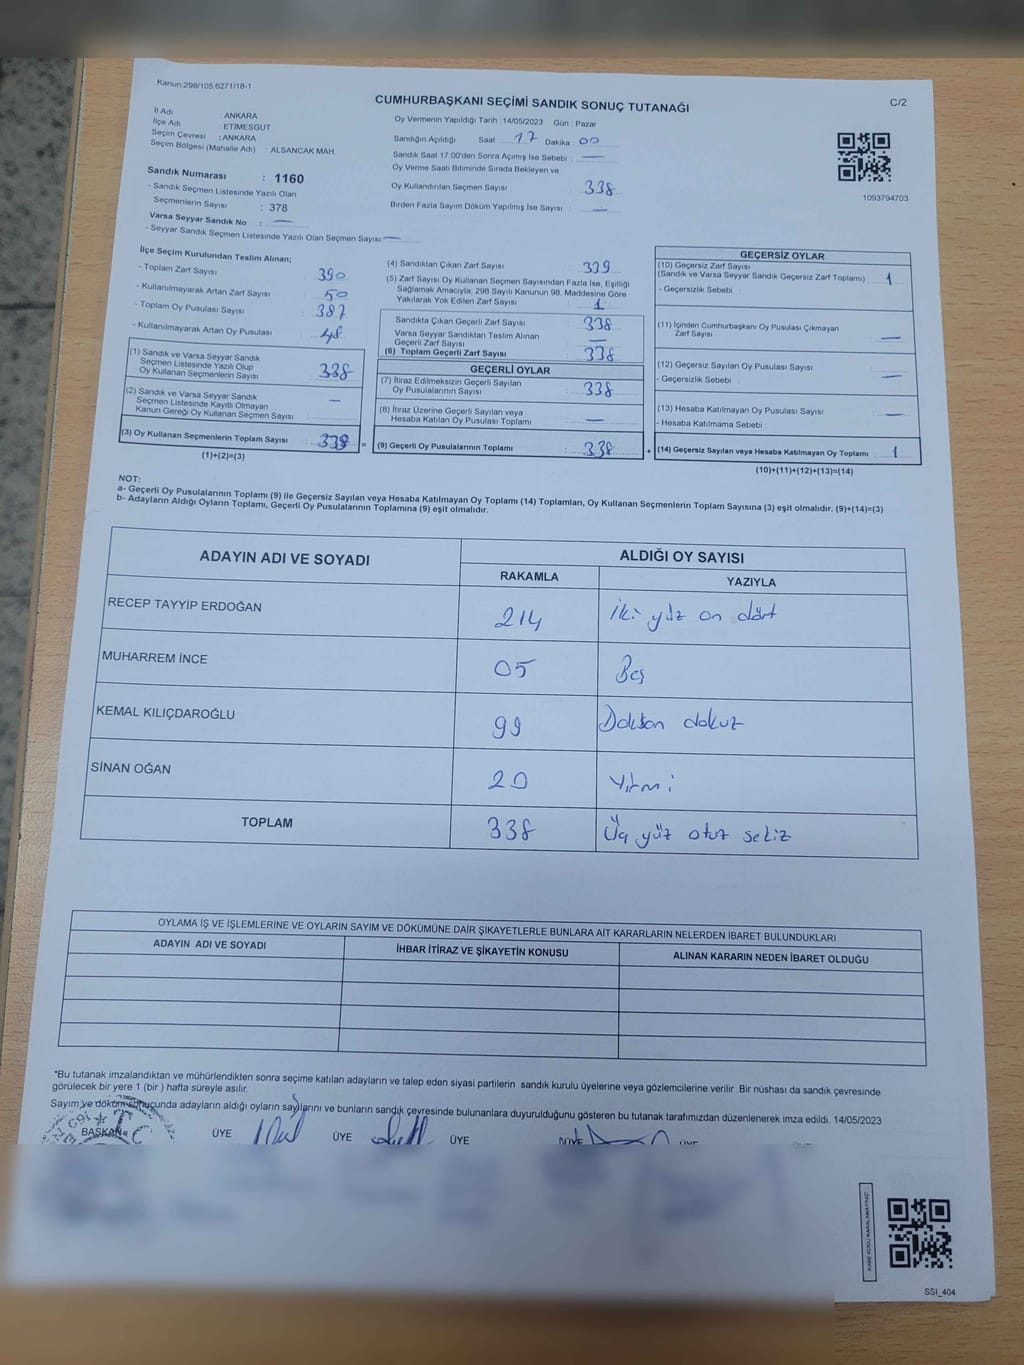 Kanun:298/105,6271/18-1
CUMHURBAŞKANI SEÇİMİ SANDIK SONUÇ TUTANAĞI
C/2
İl Adı : ANKARA
İlçe Adı : ETİMESGUT
Seçim Çevresi : ANKARA
Seçim Bölgesi (Mahalle Adı) : ALSANCAK MAH.
Sandık Numarası : 1160
- Sandık Seçmen Listesinde Yazılı Olan
Seçmenlerin Sayısı : 378
Varsa Seyyar Sandık No : —
- Seyyar Sandık Seçmen Listesinde Yazılı Olan Seçmen Sayısı —
Oy Vermenin Yapıldığı Tarih : 14/05/2023 Gün : Pazar
Sandığın Açıldığı Saat 17 Dakika : 00
Sandık Saat 17:00'den Sonra Açımış İse Sebebi : —
Oy Verme Saati Bitiminde Sırada Bekleyen ve
Oy Kullandırılan Seçmen Sayısı : 338
Birden Fazla Sayım Döküm Yapılmış İse Sayısı : —
1093794703
İlçe Seçim Kurulundan Teslim Alınan;
- Toplam Zarf Sayısı : 390
- Kullanılmayarak Artan Zarf Sayısı : 50
- Toplam Oy Pusulası Sayısı : 387
- Kullanılmayarak Artan Oy Pusulası : 48
(1) Sandık ve Varsa Seyyar Sandık
Seçmen Listesinde Yazılı Olup
Oy Kullanan Seçmenlerin Sayısı : 338
(2) Sandık ve Varsa Seyyar Sandık
Seçmen Listesinde Kayıtlı Olmayan
Kanun Gereği Oy Kullanan Seçmen Sayısı : —
(3) Oy Kullanan Seçmenlerin Toplam Sayısı
(1)+(2)=(3)
(4) Sandıktan Çıkan Zarf Sayısı : 339
(5) Zarf Sayısı Oy Kullanan Seçmen Sayısından Fazla İse, Eşitliği
Sağlamak Amacıyla; 298 Sayılı Kanunun 98. Maddesine Göre
Yakılarak Yok Edilen Zarf Sayısı : 1
Sandıkta Çıkan Geçerli Zarf Sayısı : 338
Varsa Seyyar Sandıktan Teslim Alınan
Geçerli Zarf Sayısı : —
(6) Toplam Geçerli Zarf Sayısı : 338
GEÇERLİ OYLAR
(7) İtiraz Edilmeksizin Geçerli Sayılan
Oy Pusulalarının Sayısı : 338
(8) İtiraz Üzerine Geçerli Sayılan veya
Hesaba Katılan Oy Pusulası Toplamı : —
= (9) Geçerli Oy Pusulalarının Toplamı : 338
GEÇERSİZ OYLAR
(10) Geçersiz Zarf Sayısı
(Sandık ve Varsa Seyyar Sandık Geçersiz Zarf Toplamı) : 1
- Geçersizlik Sebebi :
(11) İçinden Cumhurbaşkanı Oy Pusulası Çıkmayan
Zarf Sayısı : —
(12) Geçersiz Sayılan Oy Pusulası Sayısı : —
- Geçersizlik Sebebi :
(13) Hesaba Katılmayan Oy Pusulası Sayısı : —
- Hesaba Katılmama Sebebi :
+ (14) Geçersiz Sayılan veya Hesaba Katılmayan Oy Toplamı : 1
(10)+(11)+(12)+(13)=(14)
NOT:
a- Geçerli Oy Pusulalarının Toplamı (9) ile Geçersiz Sayılan veya Hesaba Katılmayan Oy Toplamı (14) Toplamları, Oy Kullanan Seçmenlerin Toplam Sayısına (3) eşit olmalıdır. (9)+(14)=(3)
b- Adayların Aldığı Oyların Toplamı, Geçerli Oy Pusulalarının Toplamına (9) eşit olmalıdır.
ADAYIN ADI VE SOYADI ALDIĞI OY SAYISI
RAKAMLA YAZIYLA
RECEP TAYYİP ERDOĞAN 214 İki yüz on dört
MUHARREM İNCE 05 Beş
KEMAL KILIÇDAROĞLU 99 Doksan dokuz
SİNAN OĞAN 20 Yirmi
TOPLAM 338 Üç yüz otuz sekiz
OYLAMA İŞ VE İŞLEMLERİNE VE OYLARIN SAYIM VE DÖKÜMÜNE DAİR ŞİKAYETLERLE BUNLARA AİT KARARLARIN NELERDEN İBARET BULUNDUKLARI
ADAYIN ADI VE SOYADI İHBAR İTİRAZ VE ŞİKAYETİN KONUSU ALINAN KARARIN NEDEN İBARET OLDUĞU
*Bu tutanak imzalandıktan ve mühürlendikten sonra seçime katılan adayların ve talep eden siyasi partilerin sandık kurulu üyelerine veya gözlemcilerine verilir .Bir nüshası da sandık çevresinde
görülecek bir yere 1 (bir ) hafta süreyle asılır.
Sayım ve döküm sonucunda adayların aldığı oyların sayılarını ve bunların sandık çevresinde bulunanlara duyurulduğunu gösteren bu tutanak tarafımızdan düzenlenerek imza edildi. 14/05/2023
BAŞKAN ÜYE ÜYE ÜYE ÜYE ÜYE
KARE KODU KARALAMAYINIZ!
SSI_404